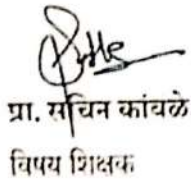 प्रा. सचिन कांवळे
विषय शिक्षक